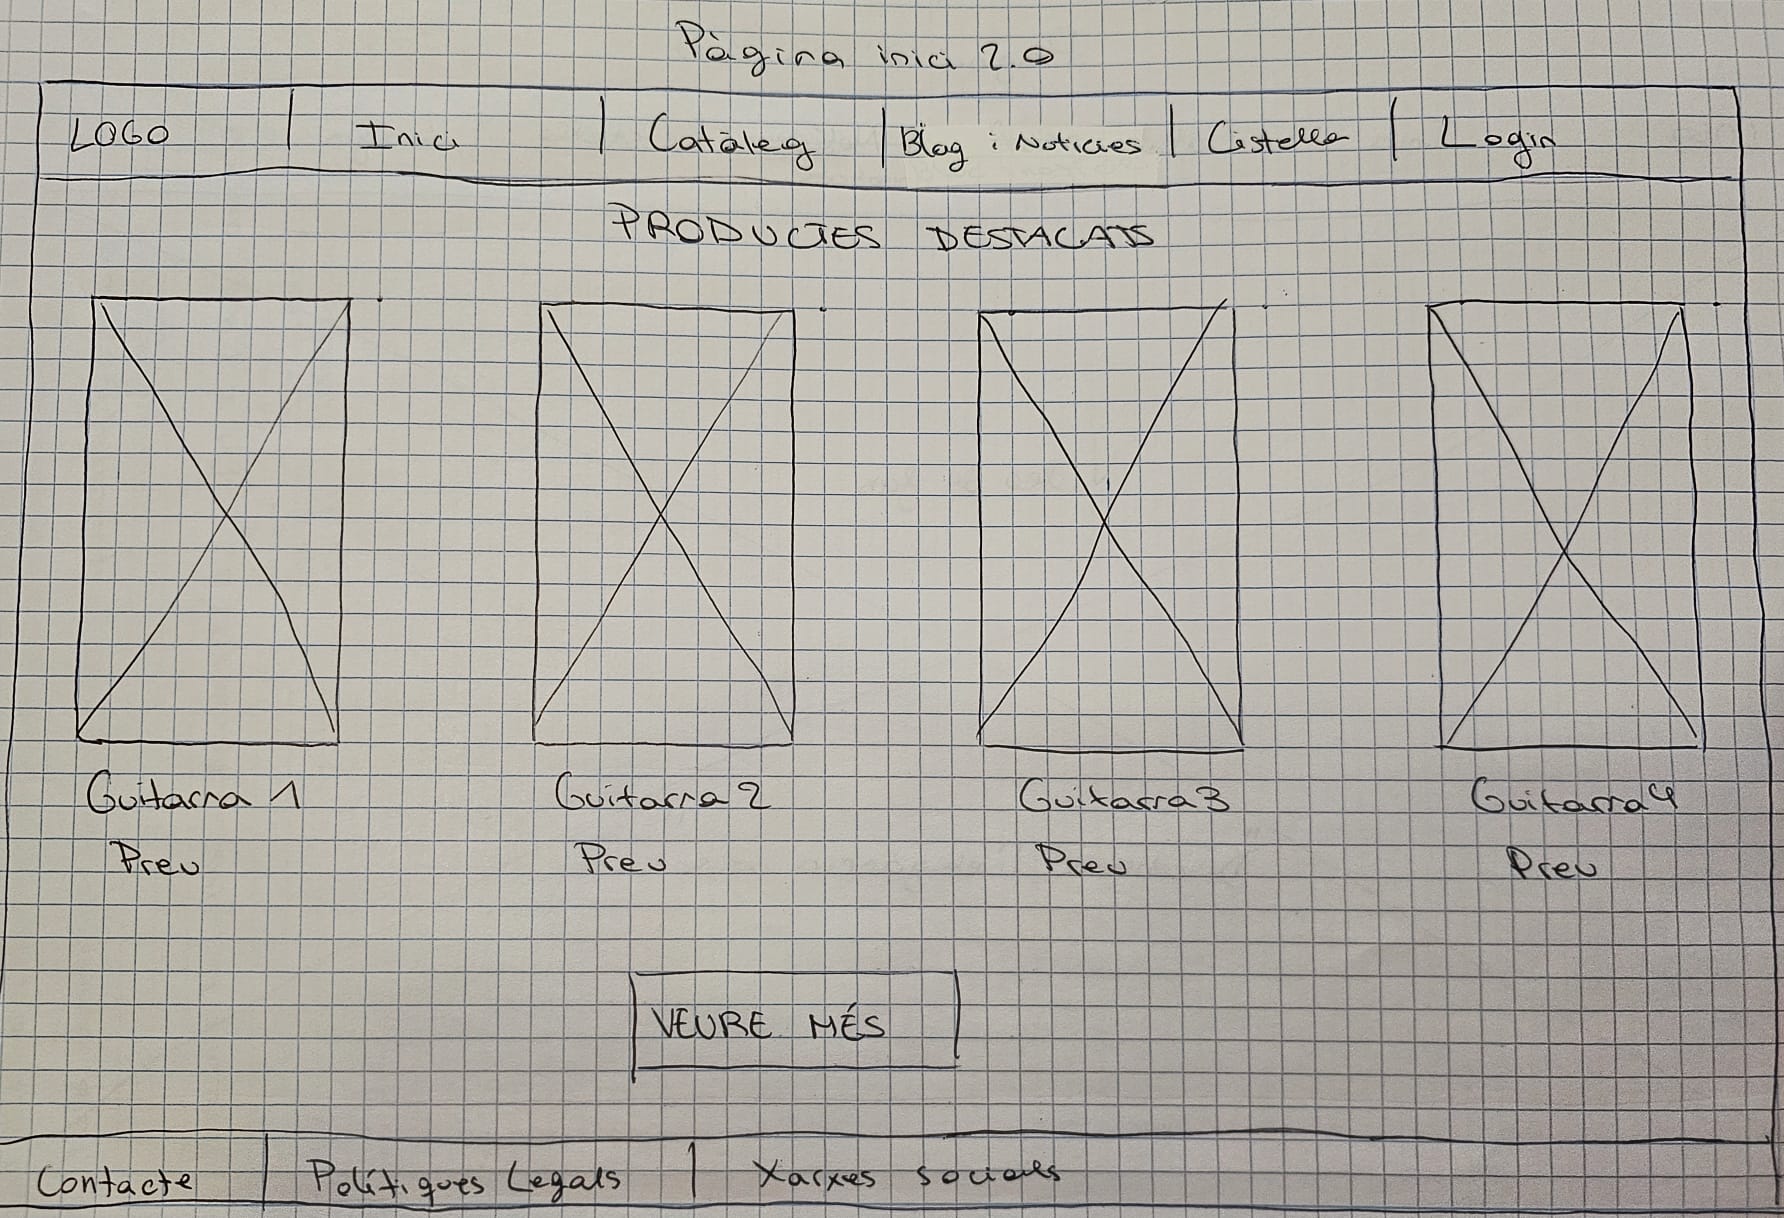 Pàgina inici 2.0
LOGO Inici Catàleg Blog i Notícies Cistella Login
PRODUCTES DESTACATS
Guitarra 1 Guitarra 2 Guitarra 3 Guitarra 4
Preu Preu Preu Preu
VEURE MÉS
Contacte Polítiques Legals Xarxes socials